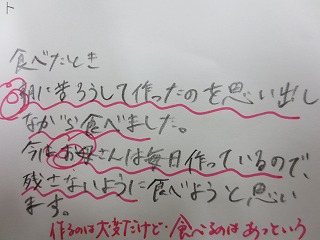 ト
食べたとき
朝に苦ろうして作ったのを思い出し
ながら食べました。
今はお母さんは毎日作っているので、
残さないように食べようと思い
ます。
作るのは大変だけど・食べるのはあっという